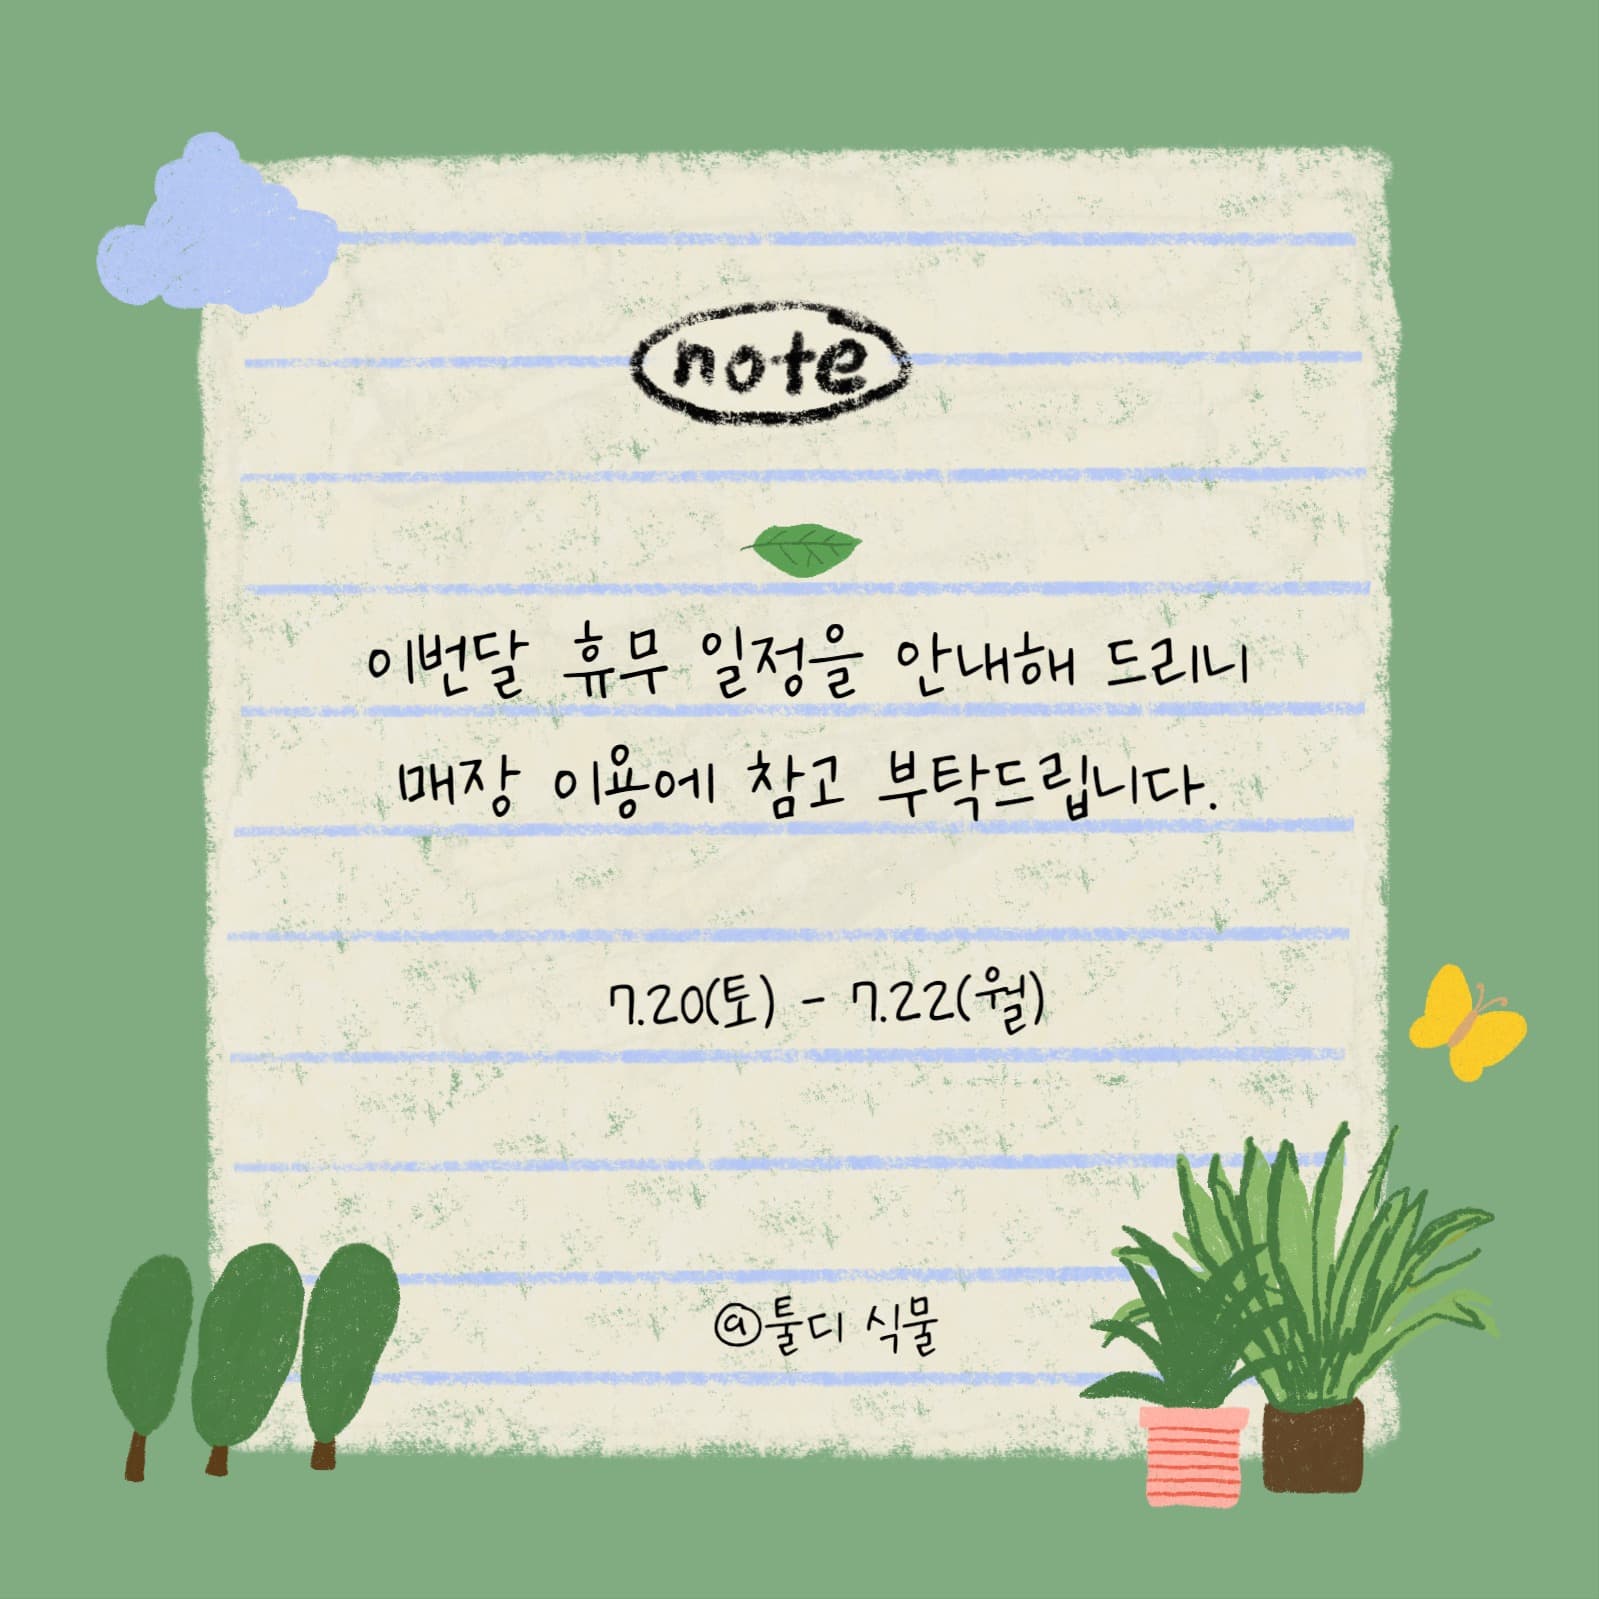 note
이번달 휴무 일정을 안내해 드리니
매장 이용에 참고 부탁드립니다.
7.20(토) - 7.22(월)
@툴디 식물